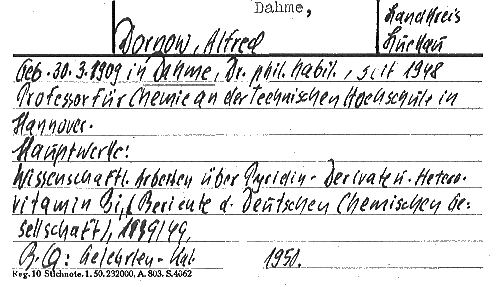 Dahme,
Landkreis
Dornow, Alfred
Luckau
Geb. 30.3.1909 in Dahme, Dr. phil. habil., seit 1948
Professor für Chemie an der Technischen Hochschule in
Hannover.
Hauptwerke:
Wissenschaftl. Arbeiten über Pyridin-Derivate u. Hetero-
vitamin B1, (Berichte d. Deutschen Chemischen Ge-
sellschaft), 1939/49,
B.Q: Gelehrten-Kal 1950.
Reg. 10 Stichnote. 1. 50. 232000, A. 803. S. 4062